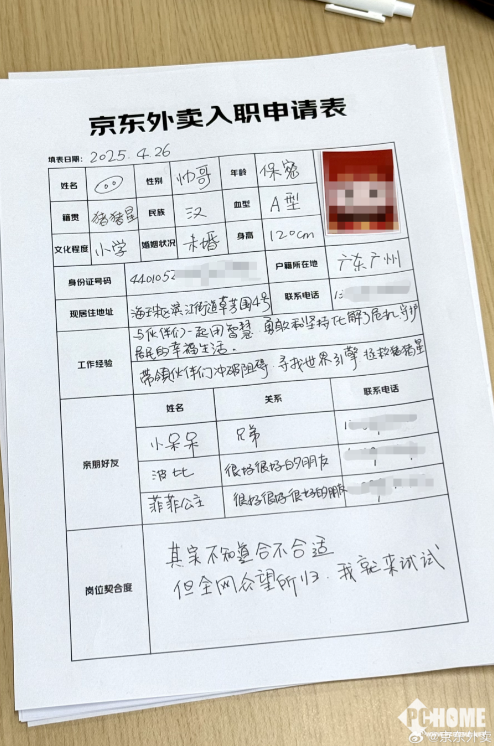 京东外卖入职申请表
填表日期：2025.4.26
姓名 性别 帅哥 年龄 保密
籍贯 猪猪星 民族 汉 血型 A型
文化程度 小学 婚姻状况 未婚 身高 120cm
身份证号码 4401052 户籍所在地 广东广州
现居住地址 海珠区滨江街道草芳围4号 联系电话 1
工作经验 与伙伴们一起用智慧、勇敢和坚持化解了危机，守护
居民的幸福生活。
带领伙伴们冲破阻碍，寻找世界引擎，拯救猪猪星
亲朋好友 姓名 关系 联系电话
小呆呆 兄弟 1
波比 很好很好的朋友
菲菲公主 很好很好很好的朋友
岗位契合度 其实不知道合不合适
但全网众望所归，我就来试试
PCHOME
@京东外卖